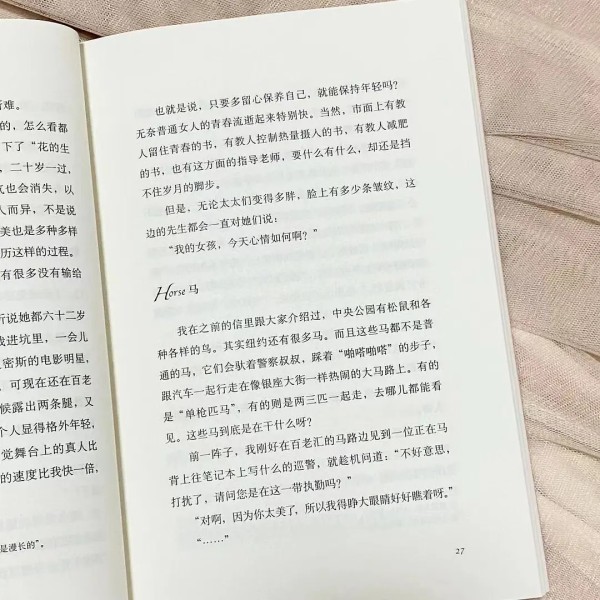 所难。
的，怎么看都
下了“花的生
，二十岁一过，
气也会消失，以
人而异，不是说
美也是多种多样
历这样的过程。
有很多没有输给
听说她都六十二岁
我进坑里，一会儿
密斯的电影明星，
，可现在还在百老
候露出两条腿，又
个人显得格外年轻，
觉舞台上的真人比
的速度比我快一倍，
是漫长的”。
也就是说，只要多留心保养自己，就能保持年轻吗？
无奈普通女人的青春流逝起来特别快。当然，市面上有教
人留住青春的书，有教人控制热量摄入的书，有教人减肥
的书，也有这方面的指导老师，要什么有什么，却还是挡
不住岁月的脚步。
但是，无论太太们变得多胖，脸上有多少条皱纹，这
边的先生都会一直对她们说：
“我的女孩，今天心情如何啊？”
Horse 马
我在之前的信里跟大家介绍过，中央公园有松鼠和各
种各样的鸟。其实纽约还有很多马。而且这些马都不是普
通的马，它们会驮着警察叔叔，踩着“啪嗒啪嗒”的步子，
跟汽车一起行走在像银座大街一样热闹的大马路上。有的
是“单枪匹马”，有的则是两三匹一起走，去哪儿都能看
见。这些马到底是在干什么呀？
前一阵子，我刚好在百老汇的马路边见到一位正在马
背上往笔记本上写什么的巡警，就趁机问道：“不好意思，
打扰了，请问您是在这一带执勤吗？”
“对啊，因为你太美了，所以我得睁大眼睛好好瞧着呀。”
“……”
27